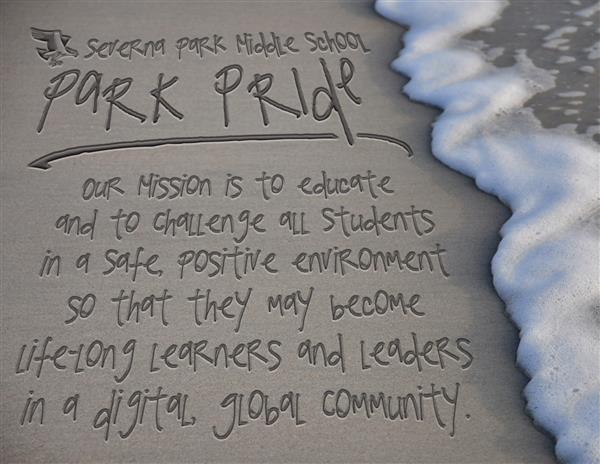 Severna Park Middle School
Park Pride
Our Mission is to educate
and to challenge all students
in a safe, positive environment
so that they may become
life-long learners and leaders
in a digital, global community.